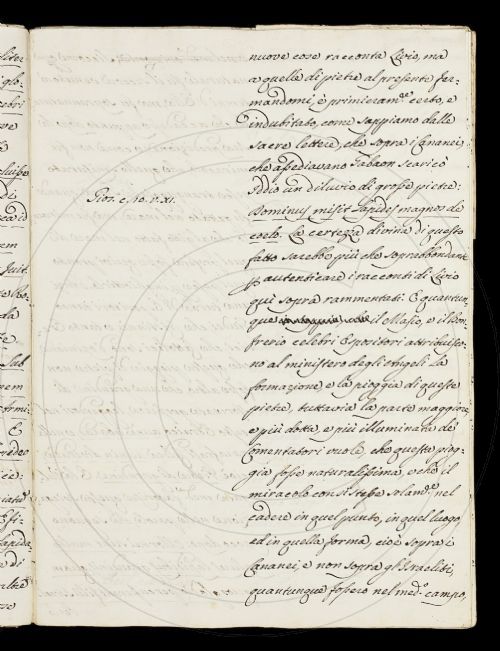 nuove cose racconta Livio, ma
a quelle di pietre al presente fer-
mandomi, è primieram.te certo, e
indubitato, come sappiamo dalle
sacre lettere, che sopra i Cananei,
che assediavano Gabaon scaricò
Iddio un diluvio di grosse pietre:
Gios. c. 10. v. XI.
Dominus misit lapides magnos de
coelo. La certezza divina di questo
fatto sarebbe più che soprabbondante
p autenticare i racconti di Livio
quì sopra rammentati. E quantun-
que il Masio, e il Bon-
frerio celebri Espositori attribuisco-
no al ministero degli Angeli la
formazione e la pioggia di queste
pietre, tuttavia la parte maggiore,
e più dotta, e più illuminata de
Comentatori vuole, che questa piog-
gia fosse naturalissima, e che il
miracolo consistesse solam.te nel
cadere in quel punto, in quel luogo,
ed in quella forma, cioè sopra i
Cananei, e non sopra gl'Israeliti,
quantunque fossero nel med.o campo,